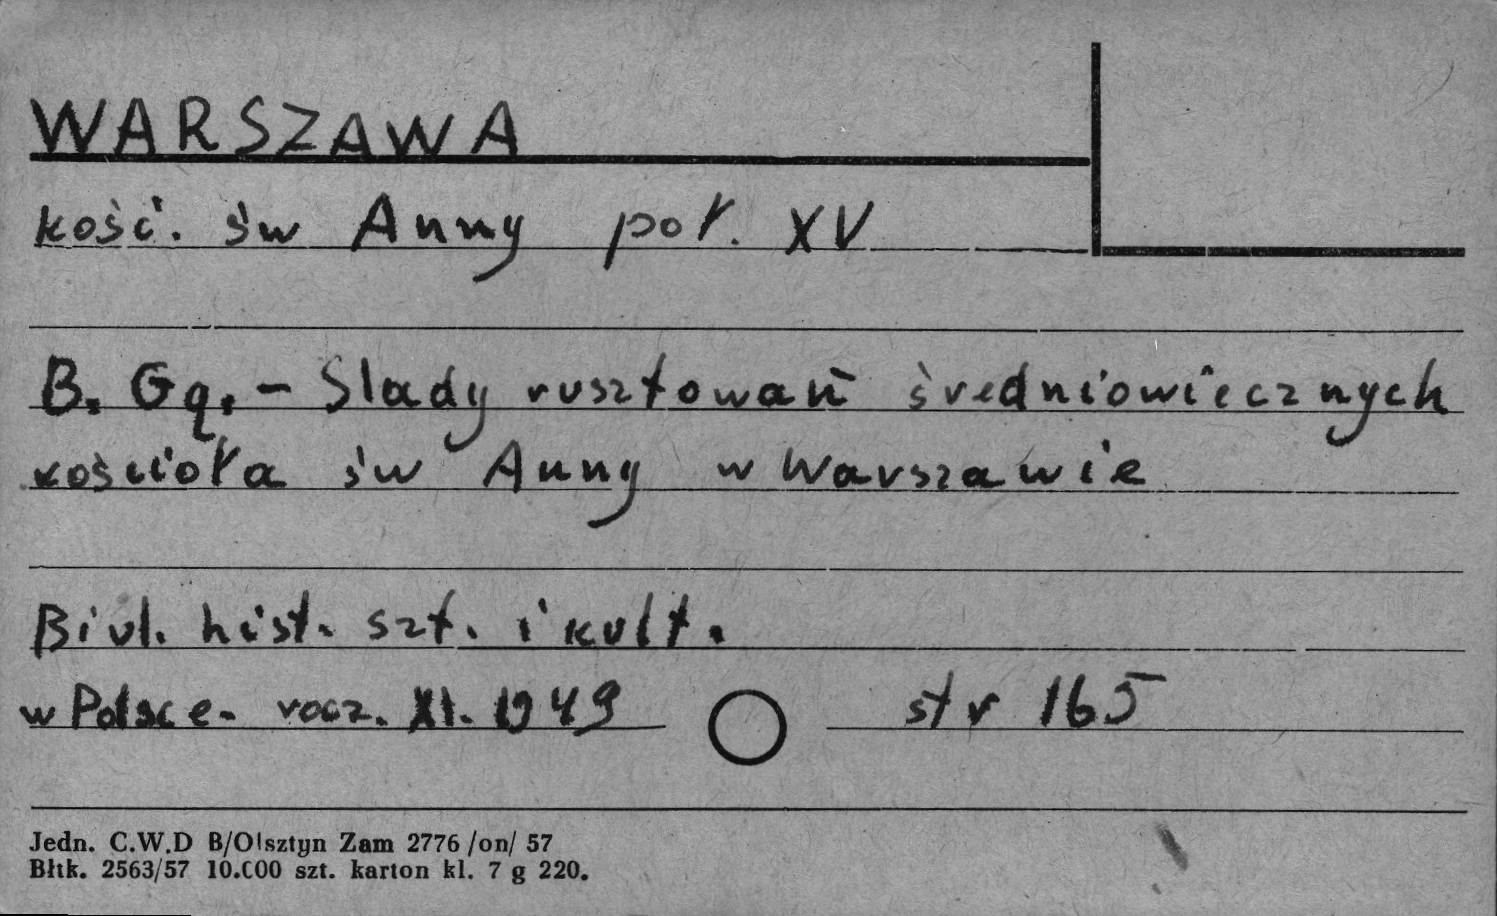 WARSZAWA
kość. św Anny poł. XV
B. Gq. - Slady rusztowań średniowiecznych
kościoła św Anny w Warszawie
Biul. hist. szt. i kult.
w Polsce. rocz. XI. 1949 str 165
Jedn. C.W.D B/Olsztyn Zam 2776 /on/ 57
Błtk. 2563/57 10.000 szt. karton kl. 7 g 220.